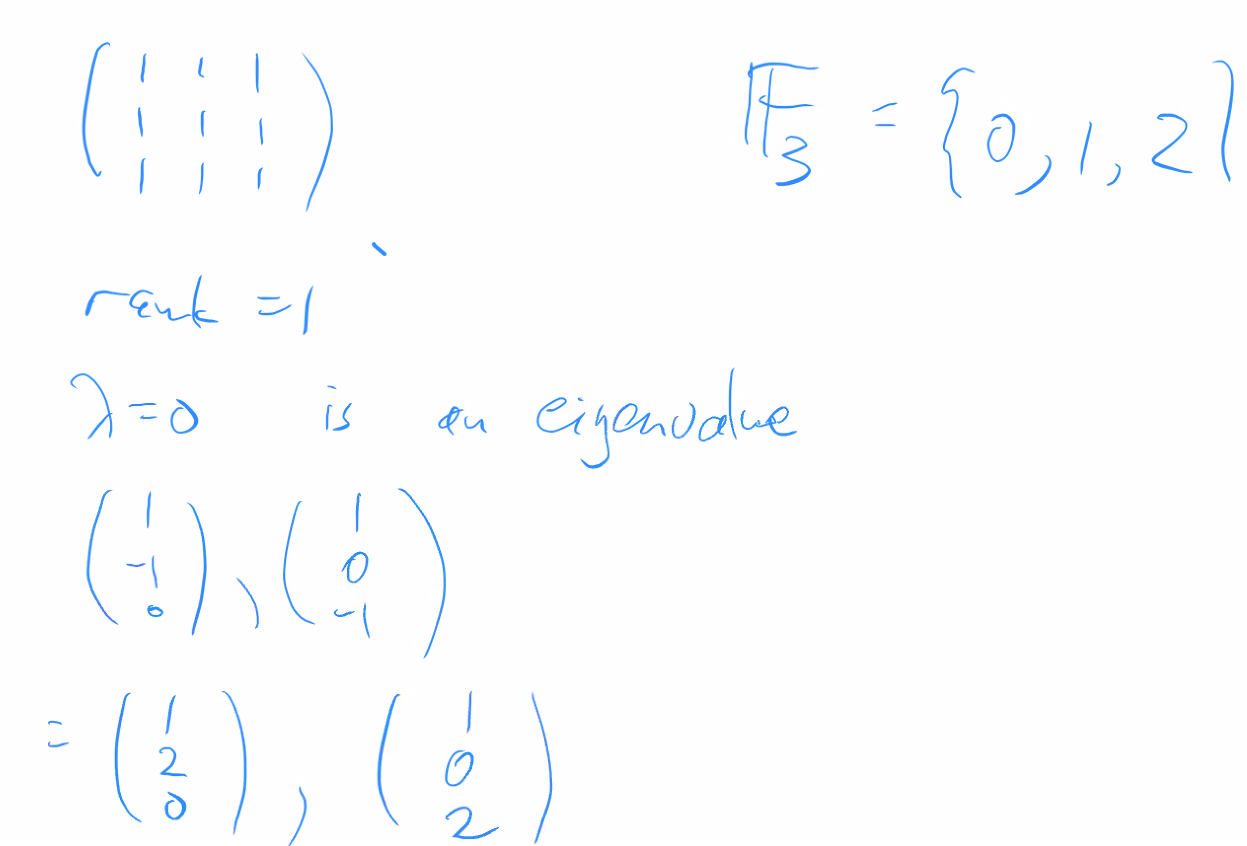 ( 1 1 1
1 1 1
1 1 1 )
𝔽₃ = {0, 1, 2}
rank = 1
λ = 0 is an eigenvalue
( 1
-1
0 ) , ( 1
0
-1 )
= ( 1
2
0 ) , ( 1
0
2 )